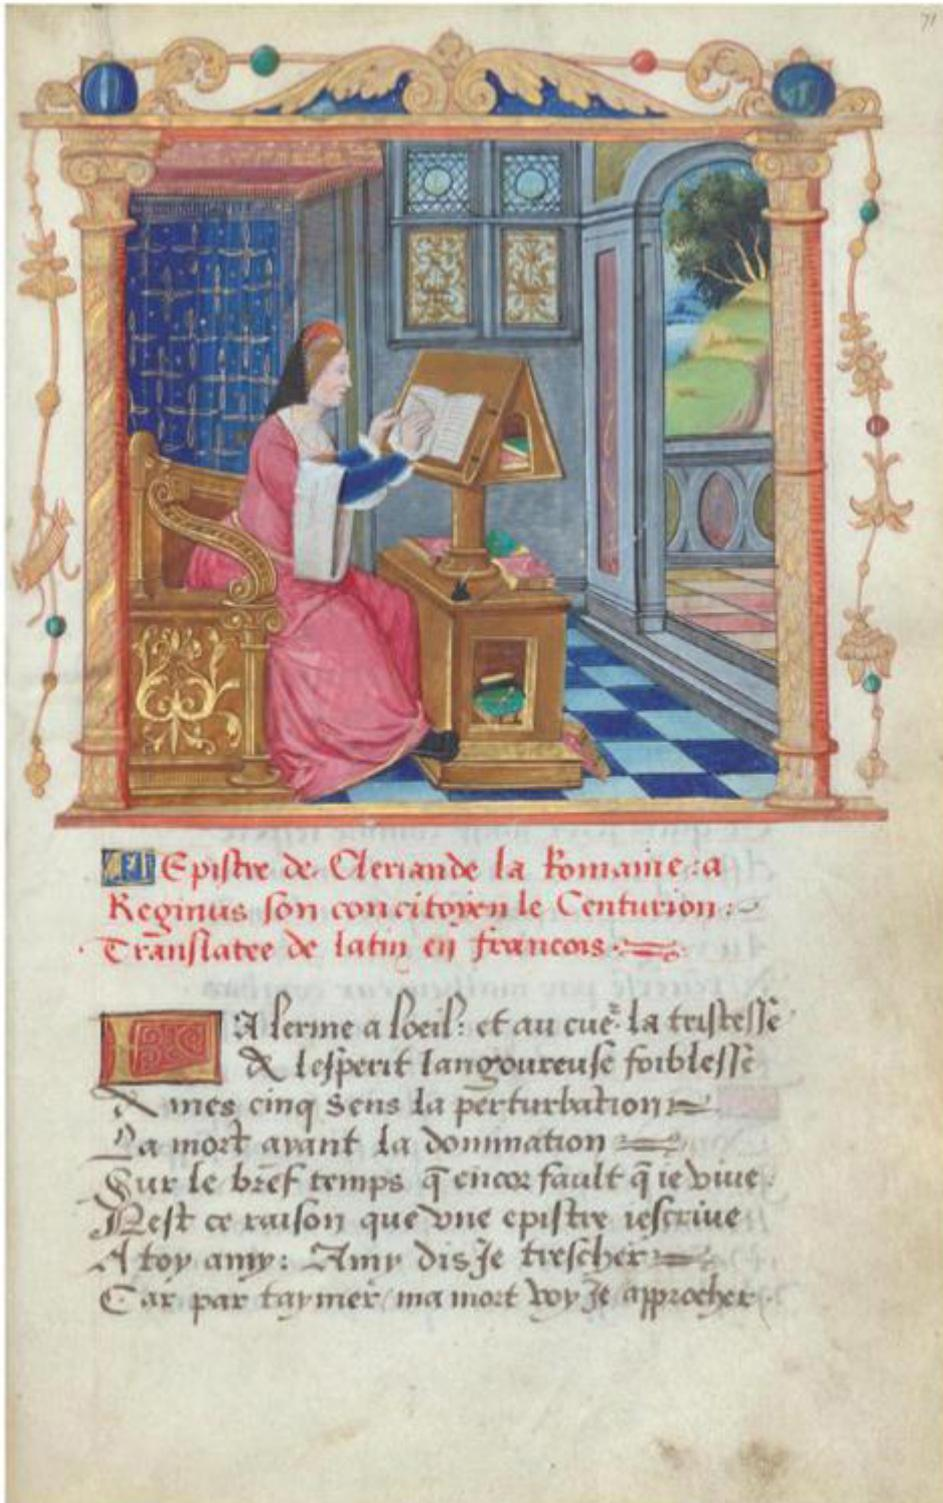 71
LEpistre de Cleriande la Romaine: a
Reginus son concitoyen le Centurion:
Translatee de latin en francois
LA lerme a loeil: et au cueʳ la tristesse
& lesperit langoureuse foiblesse
A mes cinq sens la perturbation
La mort ayant la domination
Sur le bref temps q̄ encor fault q̄ ie viue
Nest ce raison que vne epistre iescriue
A toy amy: Amy dis Je trescher
Car par taymer ma mort voy Je approcher